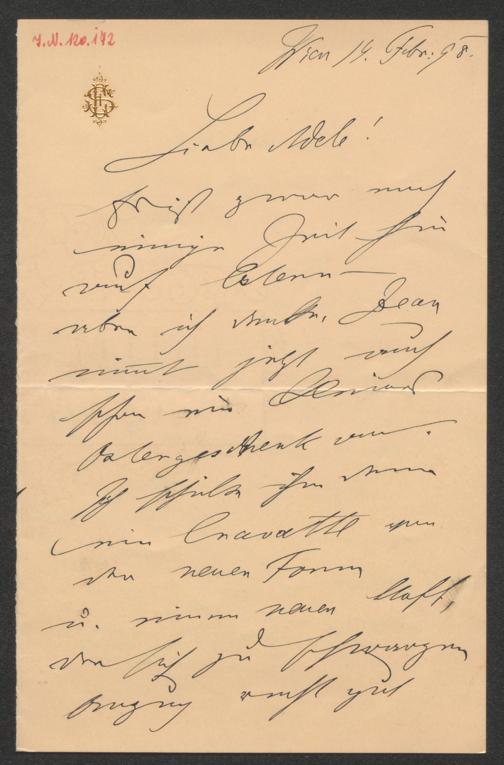 I.N. 120.172
Wien 14. Febr. 98.
Liebe Adele!
Es ist zwar noch
einige Zeit hin
auf Ostern –
aber ich denke, Jean
nimmt jetzt auch
schon ein kleines
Ostergeschenk an.
Ich schicke ihm denn
eine Cravatte von
der neuen Form
u. einem neuen Stoff,
der sich zu schwarzem
Anzug recht gut